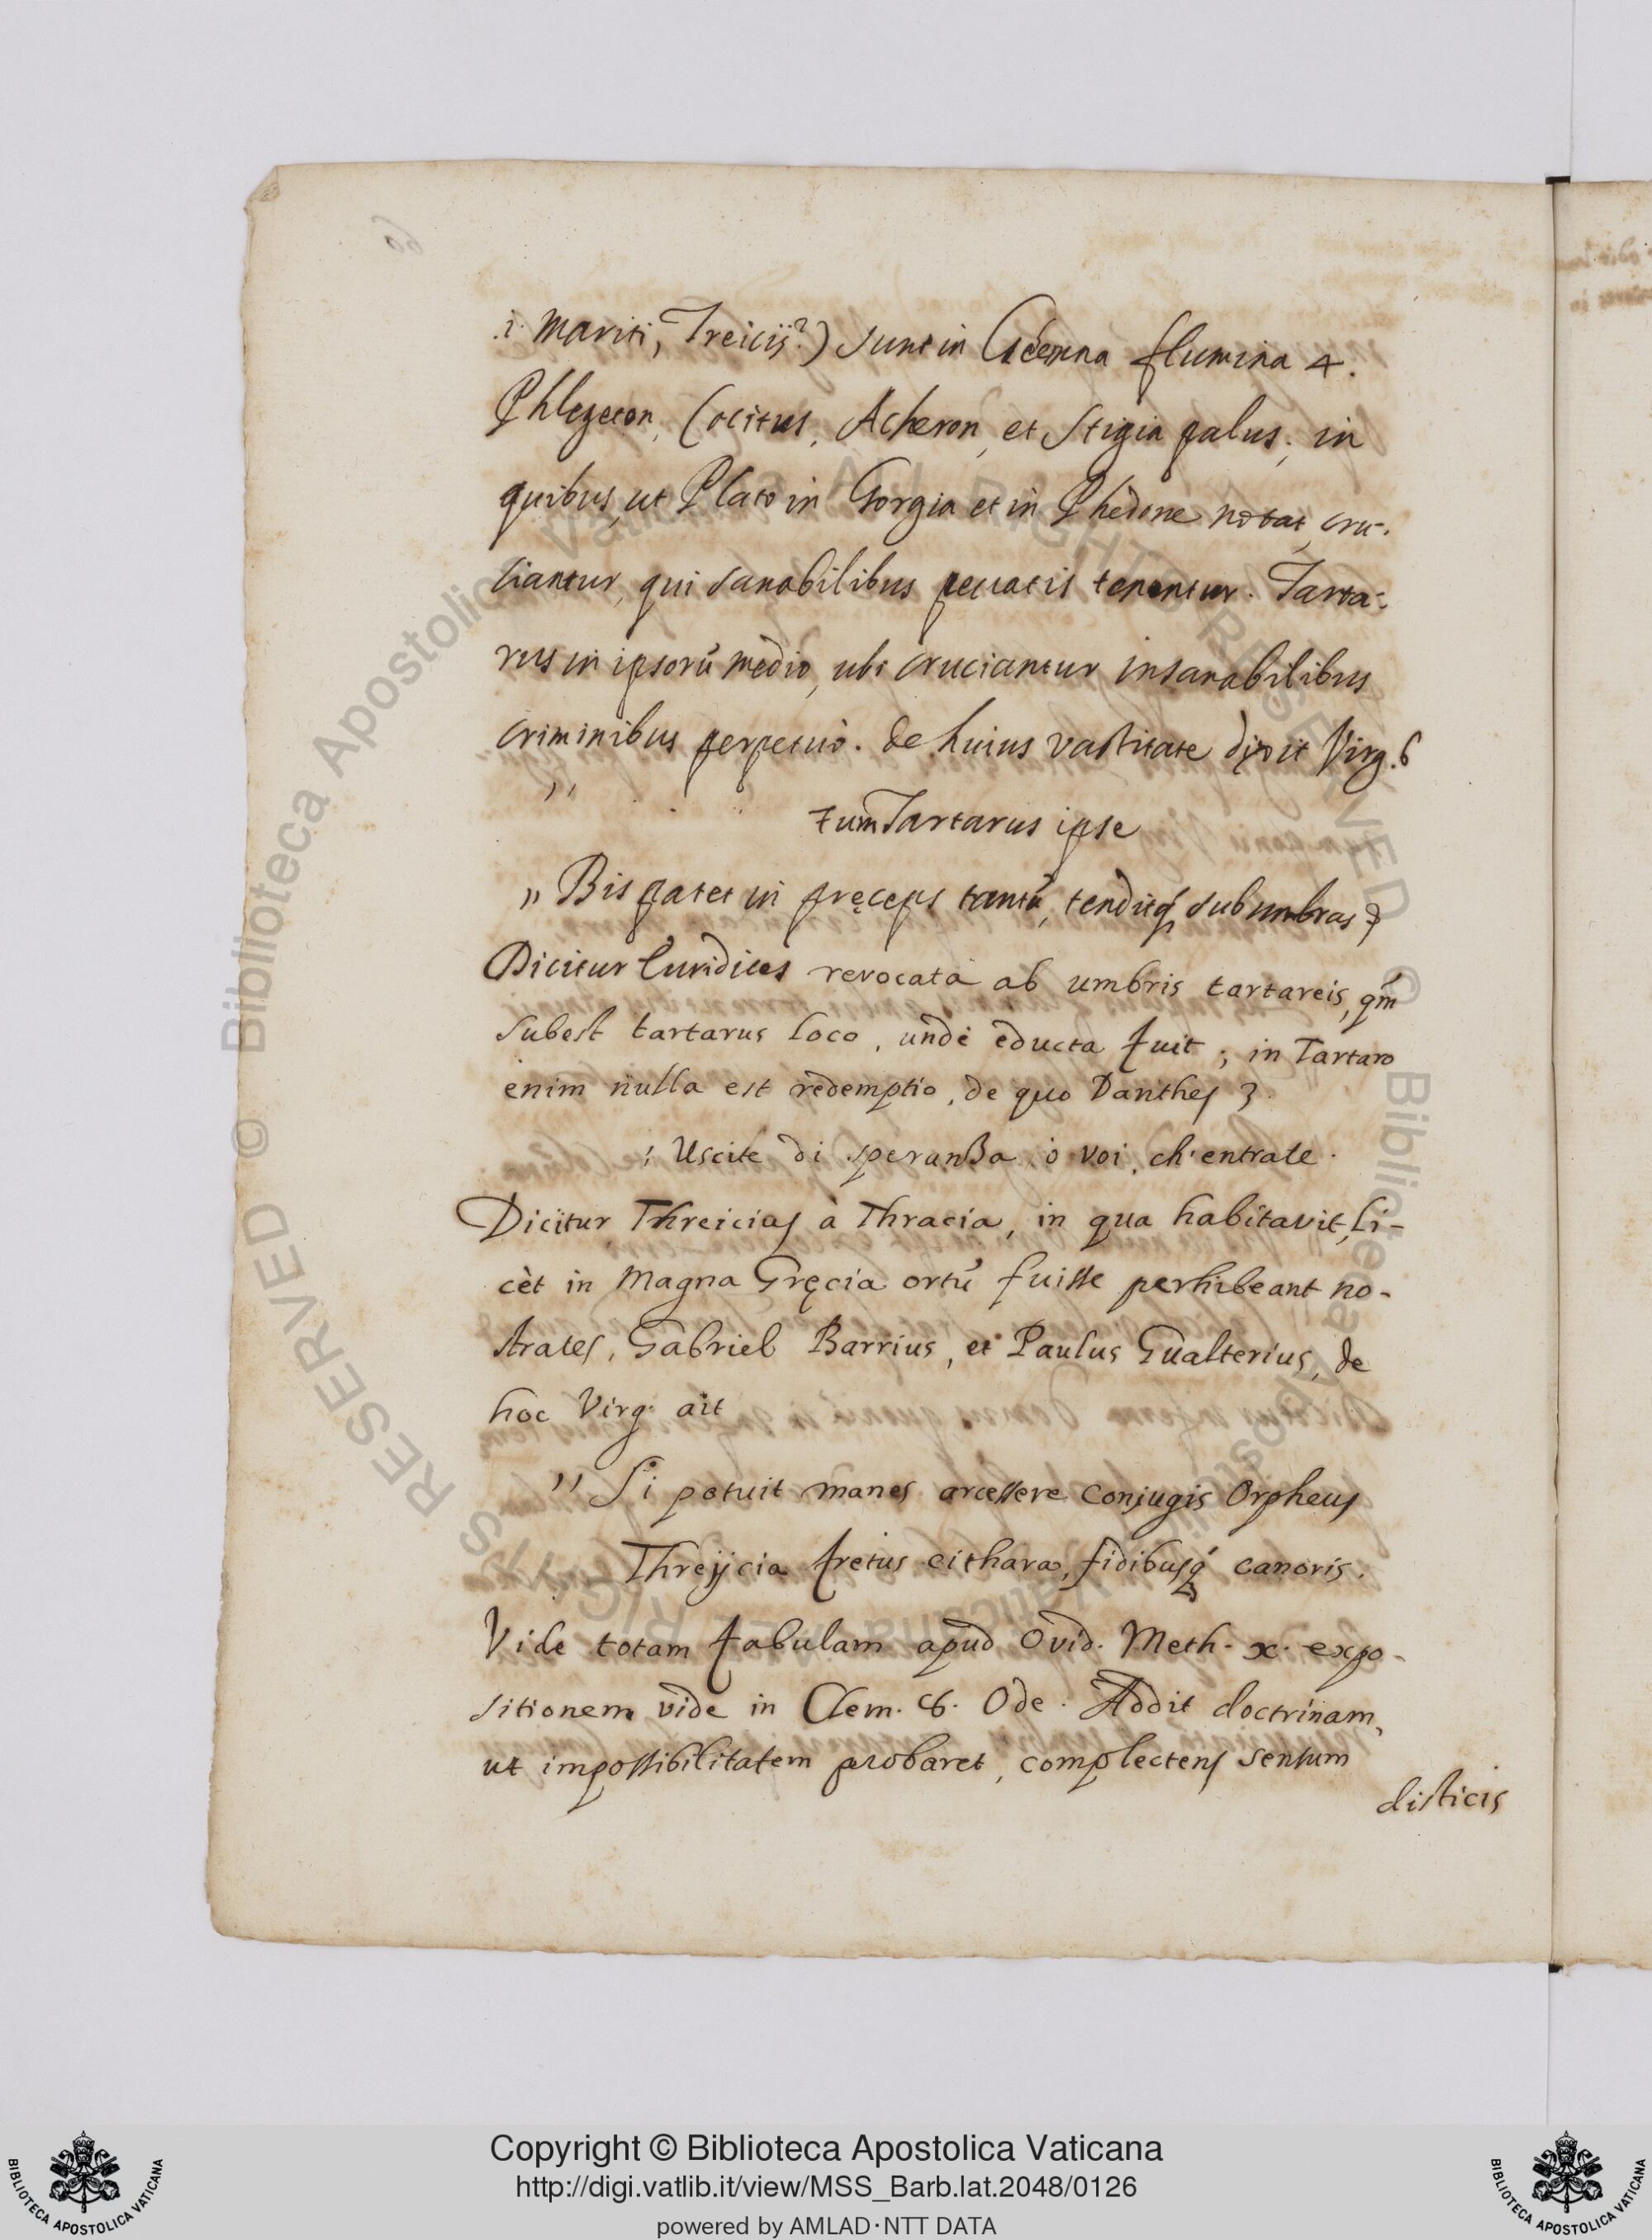 .i. Mariti, Treicij?) Sunt in Gehenna flumina 4.
Phlegeton, Cocitus, Acheron, et Stigia palus; in
quibus, ut Plato in Gorgia et in Phedone notat, cru-
ciantur, qui sanabilibus peccatis tenentur. Tarta-
rus in ipsorũ medio, ubi cruciantur insanabilibus
criminibus perpetuò. de huius vastitate dixit Virg. 6
,, tum Tartarus ipse
,, Bis patet in pręceps tantũ, tenditq́ sub umbras
Dicitur Euridices revocata ab umbris tartareis, qm̃
subest tartarus loco, unde educta fuit; in Tartaro
enim nulla est redemptio, de quo Danthes 3.
: Uscite di speranza ò voi, ch'entrate.
Dicitur Threicias à Thracia, in qua habitavit, li-
cèt in Magna Gręcia ortũ fuisse perhibeant no-
strates, Gabriel Barrius, et Paulus Gualterius, de
hoc Virg. ait
,, Si potuit manes arcessere conjugis Orpheus
Threijcia fretus cithara, fidibusq́ canoris.
Vide totam fabulam apud Ovid. Meth. x. expo-
sitionem vide in Clem. 6. Ode. Addit doctrinam,
ut impossibilitatem probaret, complectens sensum
disticis
60
© Biblioteca Apostolica Vaticana ALL RIGHTS RESERVED © Biblioteca Apostolica Vaticana ALL RIGHTS RESERVED
Copyright © Biblioteca Apostolica Vaticana
http://digi.vatlib.it/view/MSS_Barb.lat.2048/0126
powered by AMLAD·NTT DATA
BIBLIOTECA APOSTOLICA VATICANA
BIBLIOTECA APOSTOLICA VATICANA